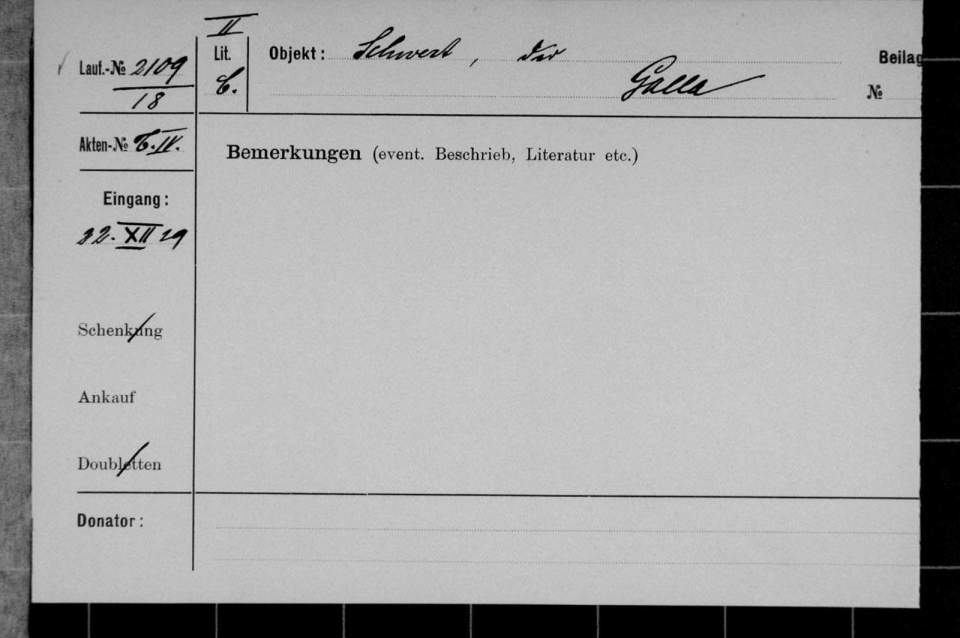 II
Lauf.-№ 2109
18
Lit.
C.
Objekt: Schwert, der
Galla
Beilag
№
Akten-№ C. IV.
Bemerkungen (event. Beschrieb, Literatur etc.)
Eingang:
22. XII 29
Schenkung
Ankauf
Doubletten
Donator: